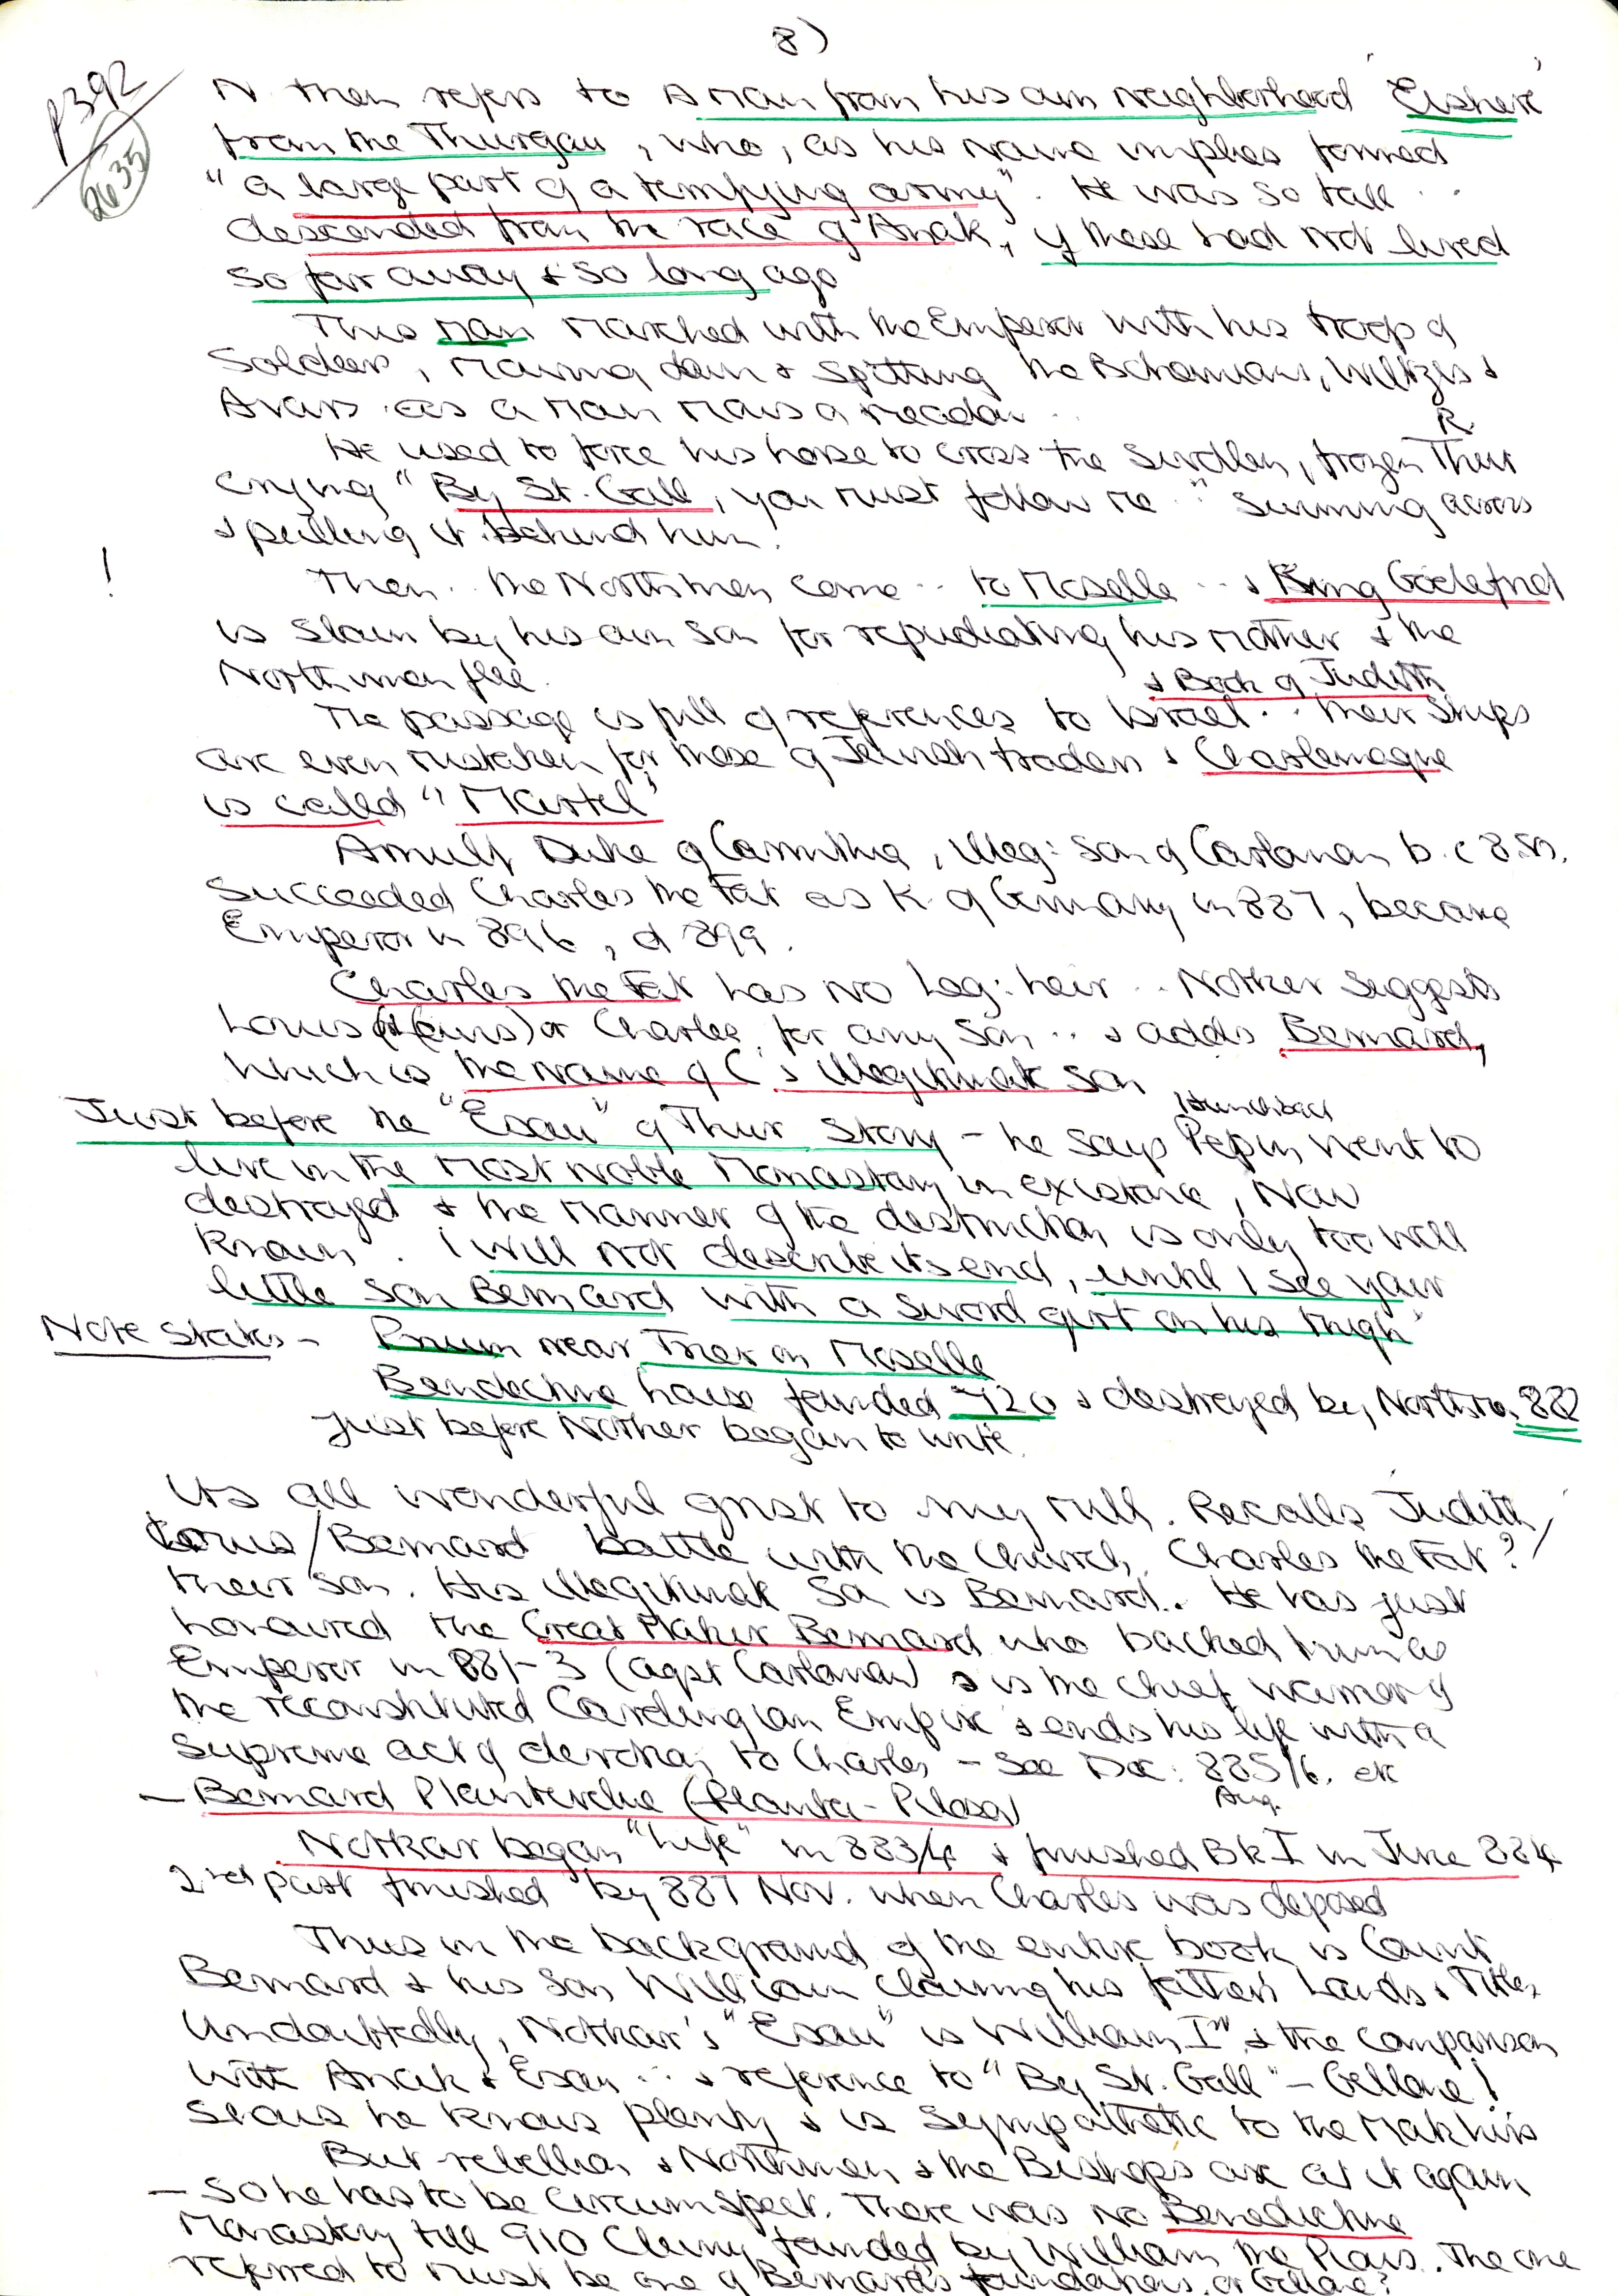 8)
p392
2635
N then refers to a man from his own neighborhood 'Eishere'
from the Thurgau, who, as his name implies formed
"a large part of a terrifying army". He was so tall . .
descended from the race of Anak, if these had not lived
so far away & so long ago
This man marched with the Emperor with his troop of
Soldiers, mowing down & spitting the Bohemians, Wiltzes &
Avars as a man mows a meadow . .
He used to force his horse to cross the swollen, frozen R. Thur
crying "By St. Gall, you must follow me." Swimming across
& pulling it behind him!
! Then . . the Northmen come . . to Moselle . . & King Godefrid
is slain by his own son for repudiating his mother & the
Northmen flee.
The passage is full of references to Israel & Book of Judith . . Their ships
are even mistaken for those of Jewish traders & Charlemagne
is called "Martel"
Arnulf Duke of Carinthia, illeg: son of Carloman b. c 850.
Succeeded Charles the Fat as K. of Germany in 887, became
Emperor in 896, d 899.
Charles the Fat has no leg: heir . . Notker suggests
Louis or Charles for any son . . & adds Bernard,
which is the name of C's illegitimate son
Just before the "Esau" of Thur story – he says Hunchback Pepin went to
live in the most noble Monastery in existence, now
destroyed & the manner of the destruction is only too well
known. I will not describe its end, until I see your
little son Bernard with a sword girt on his thigh'
Note states – Prum near Trier on Moselle
Benedictine house founded 720 & destroyed by Northm. 882
just before Notker began to write.
Its all wonderful grist to my mill. Recalls Judith /
Louis / Bernard battle with the Church. Charles the Fat?
their son. His illegitimate son is Bernard. He has just
honoured the Great Makhir Bernard who backed him as
Emperor in 881-3 (agst Carloman) & is the chief warrior of
the reconstituted Carolingian Empire & ends his life with a
supreme act of devotion to Charles – See Doc: 885/6. etc
Aug.
– Bernard Plantevelue (Planta-Pilosa)
Notkar began "Life" in 883/4 & finished Bk I in June 884
2nd part finished by 887 Nov. when Charles was deposed
Thus in the background of the entire book is Count
Bernard & his son William claiming his father's Lands & Titles
Undoubtedly, Notkar's "Esau" is William Ist & the comparison
with Anak & Esau . . & reference to "By St. Gall" – Gellone!
Shows he knows plenty & is sympathetic to the Makhirs
But rebellion & Northmen & the Bishops are at it again
– So he has to be circumspect. There was no Benedictine
Monastery till 910 Cluny founded by William the Pious. The one
referred to must be one of Bernard's foundations, or Gellone?